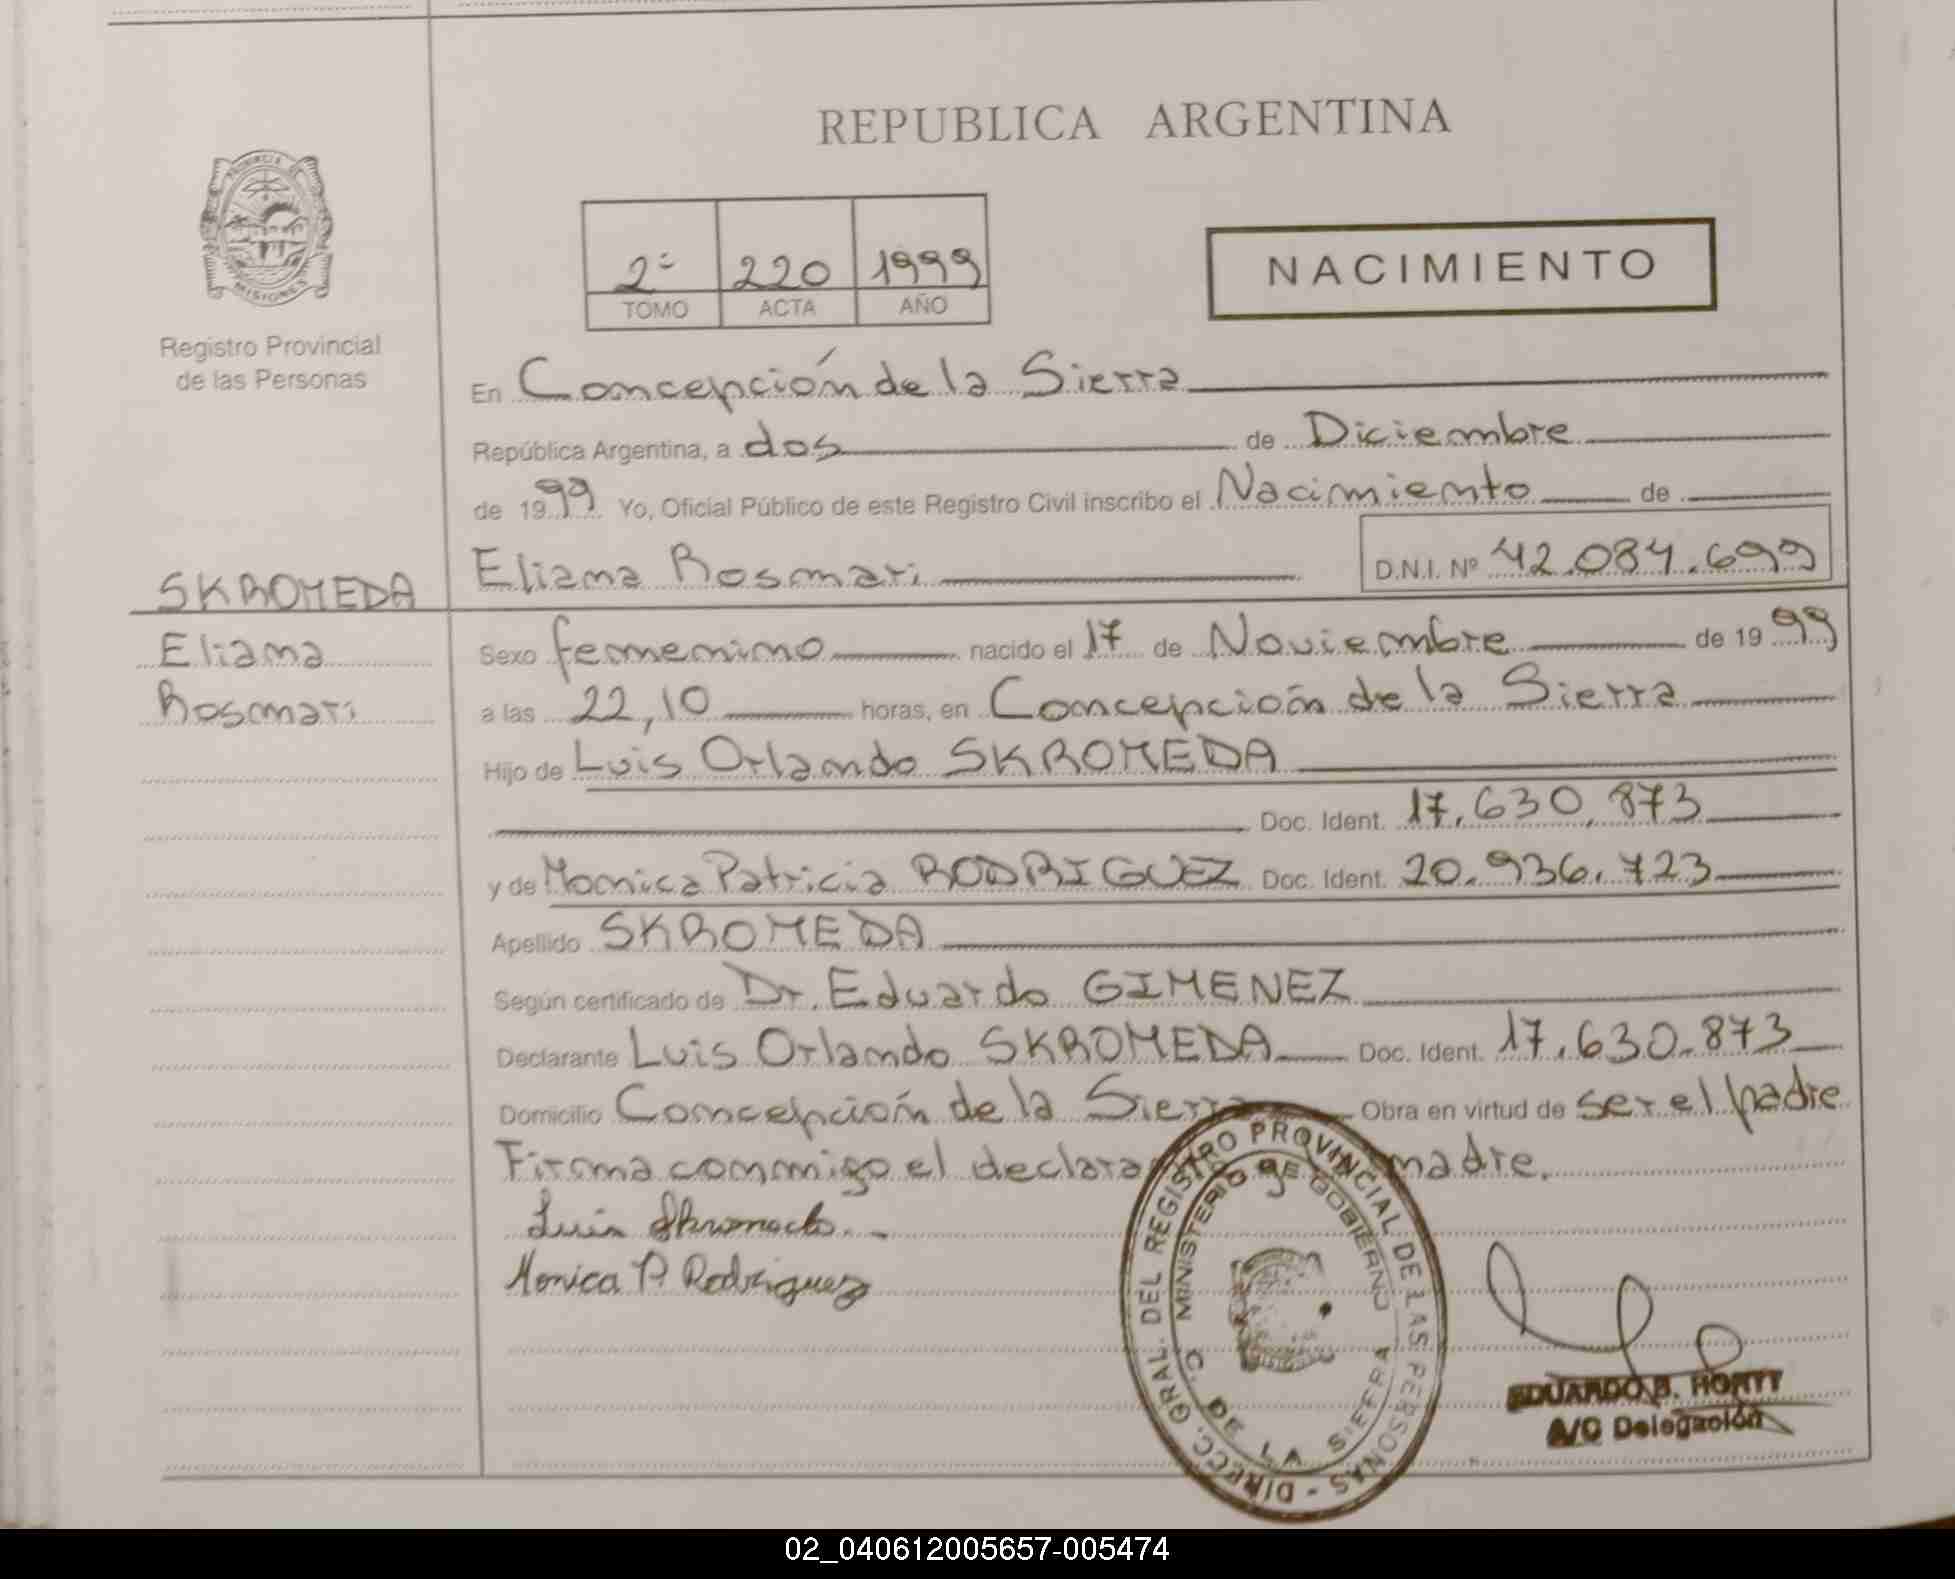 REPUBLICA ARGENTINA
PROVINCIA DE MISIONES
Registro Provincial
de las Personas
2º 220 1999
TOMO ACTA AÑO
NACIMIENTO
En Concepción de la Sierra
República Argentina, a dos de Diciembre
de 1999 Yo, Oficial Público de este Registro Civil inscribo el Nacimiento de
Eliana Rosmari D.N.I. Nº 42.084.699
SKROMEDA
Eliana
Rosmari
Sexo femenino nacido el 17 de Noviembre de 1999
a las 22,10 horas, en Concepción de la Sierra
Hijo de Luis Orlando SKROMEDA
Doc. Ident. 17.630.873
y de Monica Patricia RODRIGUEZ Doc. Ident. 20.936.723
Apellido SKROMEDA
Según certificado de Dr. Eduardo GIMENEZ
Declarante Luis Orlando SKROMEDA Doc. Ident. 17.630.873
Domicilio Concepción de la Sierra Obra en virtud de ser el padre
Firma conmigo el declara madre.
Luis Skromeda
Monica P. Rodriguez
DIRECC. GRAL. DEL REGISTRO PROVINCIAL DE LAS PERSONAS -
MINISTERIO DE GOBIERNO
C. DE LA SIERRA
EDUARDO B. HORTT
A/C Delegación
02_040612005657-005474